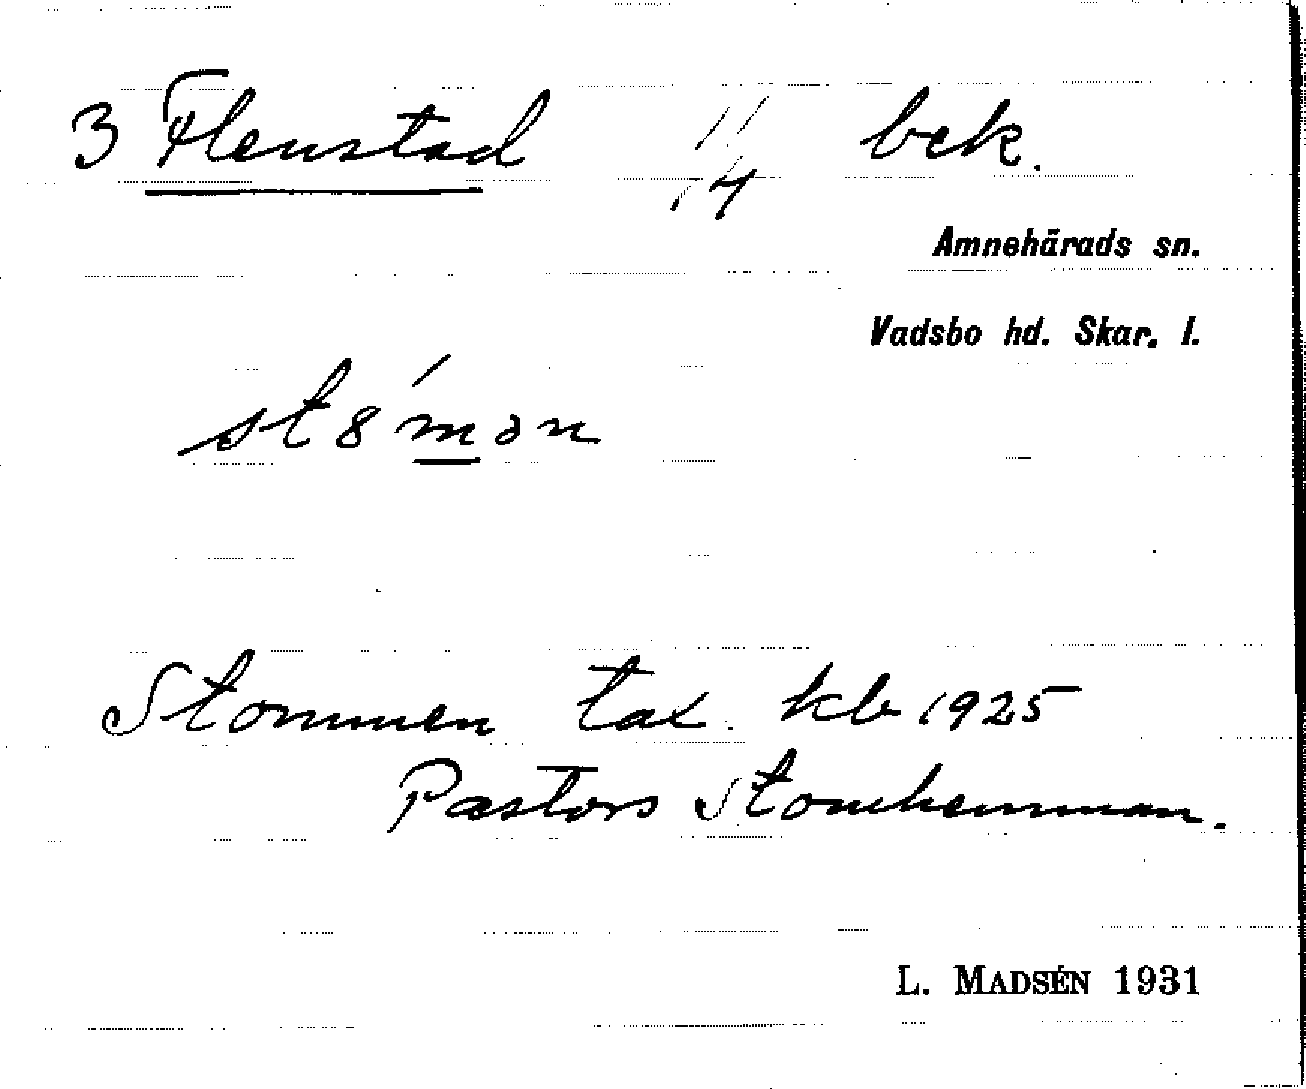 3 Flenstad 11/14 bek.
Amnehärads sn.
Vadsbo hd. Skar. l.
st8´mən
Stommen tax. kb 1925
Pastors Stomhemman.
L. MADSÉN 1931